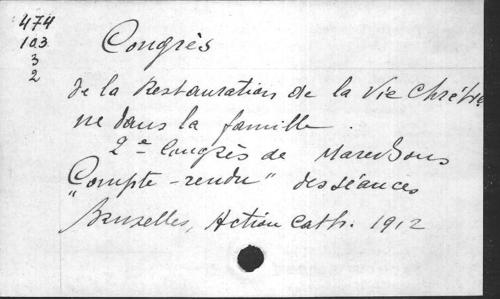 474
103
3
2
Congrès
de la Restauration de la Vie Chrétien
ne dans la famille.
2e Congrès de Maredsous
"Compte-rendu" des séances
Bruxelles, Action Cath. 1912